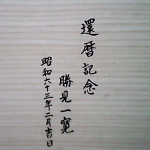 還暦記念
勝見一寛
昭和六十三年二月吉日